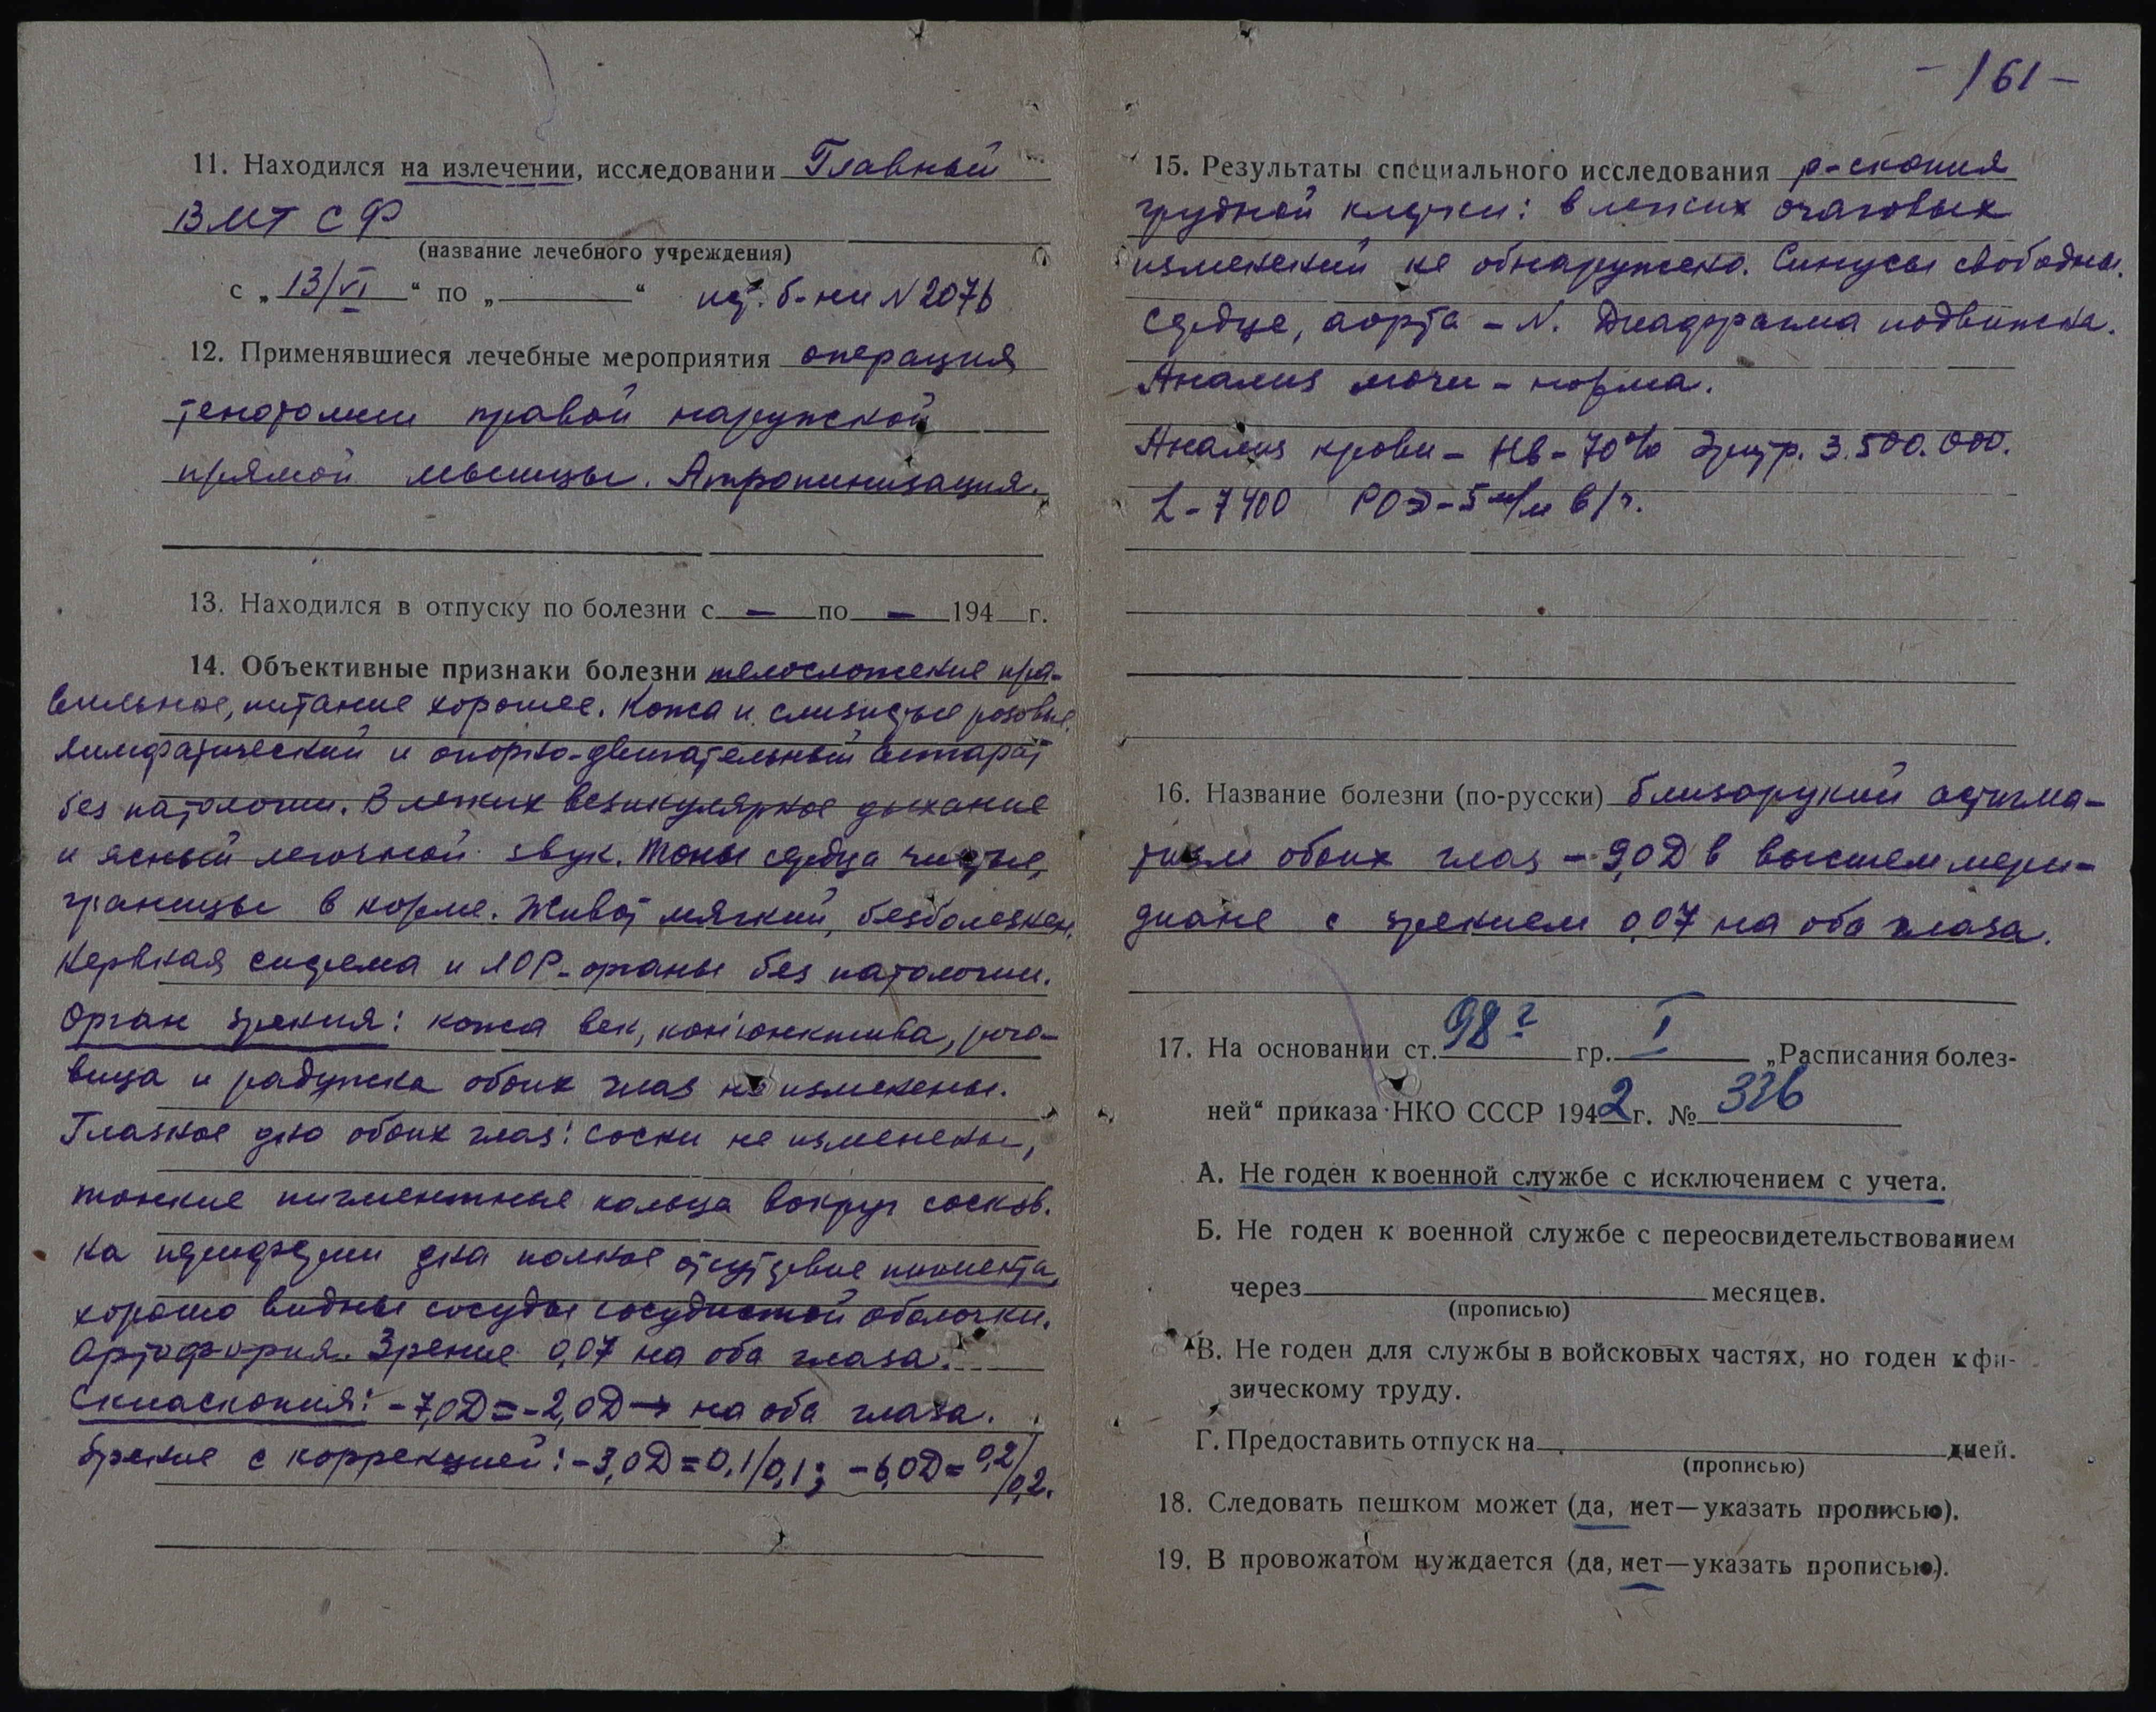 11. Находился на излечении, исследовании Главный
ВМГ СФ
(название лечебного учреждения)
с „13/VI“ по „ “ ист. б-ни N 2076
12. Применявшиеся лечебные мероприятия операция
тенотомии правой наружной
прямой мышцы. Атропинизация.
13. Находился в отпуску по болезни с — по — 194 г.
14. Объективные признаки болезни телосложение пра-
вильное, питание хорошее. Кожа и слизистые розовые,
лимфатический и опорно-двигательный аппарат
без патологии. В легких везикулярное дыхание
и ясный легочной звук. Тоны сердца чистые,
границы в норме. Живот мягкий, безболезнен.
Нервная система и ЛОР-органы без патологии.
Орган зрения: кожа век, конъюнктива, рого-
вица и радужка обоих глаз не изменены.
Глазное дно обоих глаз: соски не изменены,
тонкие пигментные кольца вокруг сосков.
На периферии дна полное отсутствие пигмента,
хорошо видны сосуды сосудистой оболочки.
Ортофория. Зрение 0,07 на оба глаза.
Скиаскопия: -7,0D = -2,0D → на оба глаза.
Зрение с коррекцией: -3,0D = 0,1/0,1; -6,0D = 0,2/0,2.
-161-
15. Результаты специального исследования р-скопия
грудной клетки: в легких очаговых
изменений не обнаружено. Синусы свободны.
Сердце, аорта - N. Диафрагма подвижна.
Анализ мочи - норма.
Анализ крови - Нb - 70% Эритр. 3.500.000.
L - 7400 РОЭ - 5 м/м в/ч.
16. Название болезни (по-русски) близорукий астигма-
тизм обоих глаз - 9,0D в высшем мери-
диане с зрением 0,07 на оба глаза.
17. На основании ст. 98 г гр. I „Расписания болез-
ней“ приказа НКО СССР 1942 г. № 336
А. Не годен к военной службе с исключением с учета.
Б. Не годен к военной службе с переосвидетельствованием
через месяцев.
(прописью)
В. Не годен для службы в войсковых частях, но годен к фи-
зическому труду.
Г. Предоставить отпуск на дней.
(прописью)
18. Следовать пешком может (да, нет—указать прописью).
19. В провожатом нуждается (да, нет—указать прописью).